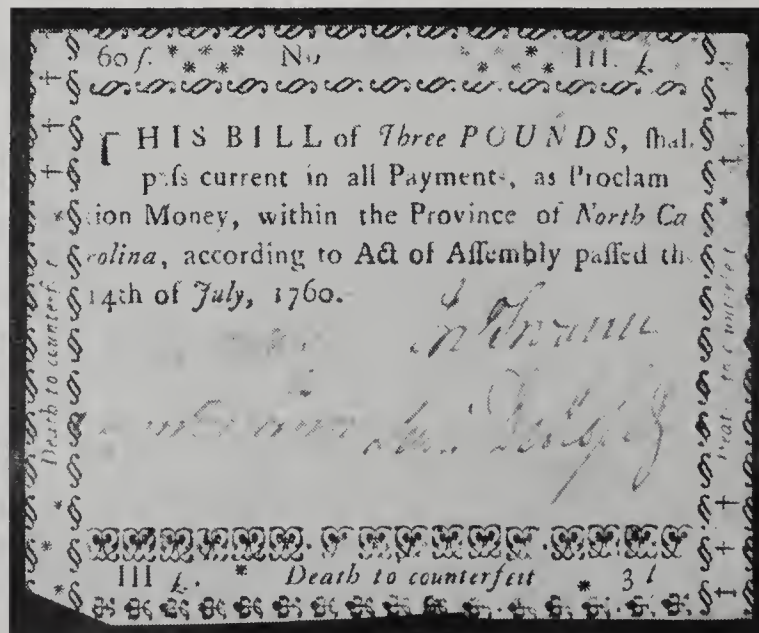 60ſ. * * * * * No * * * * * III. £
THIS BILL of Three POUNDS, ſhal
paſs current in all Payments, as Proclam
tion Money, within the Province of North Ca
rolina, according to Act of Aſſembly paſſed the
14th of July, 1760.
Jn Swann
Death to counterfeit
Death to counterfeit
III £. * Death to counterfeit * 3 l